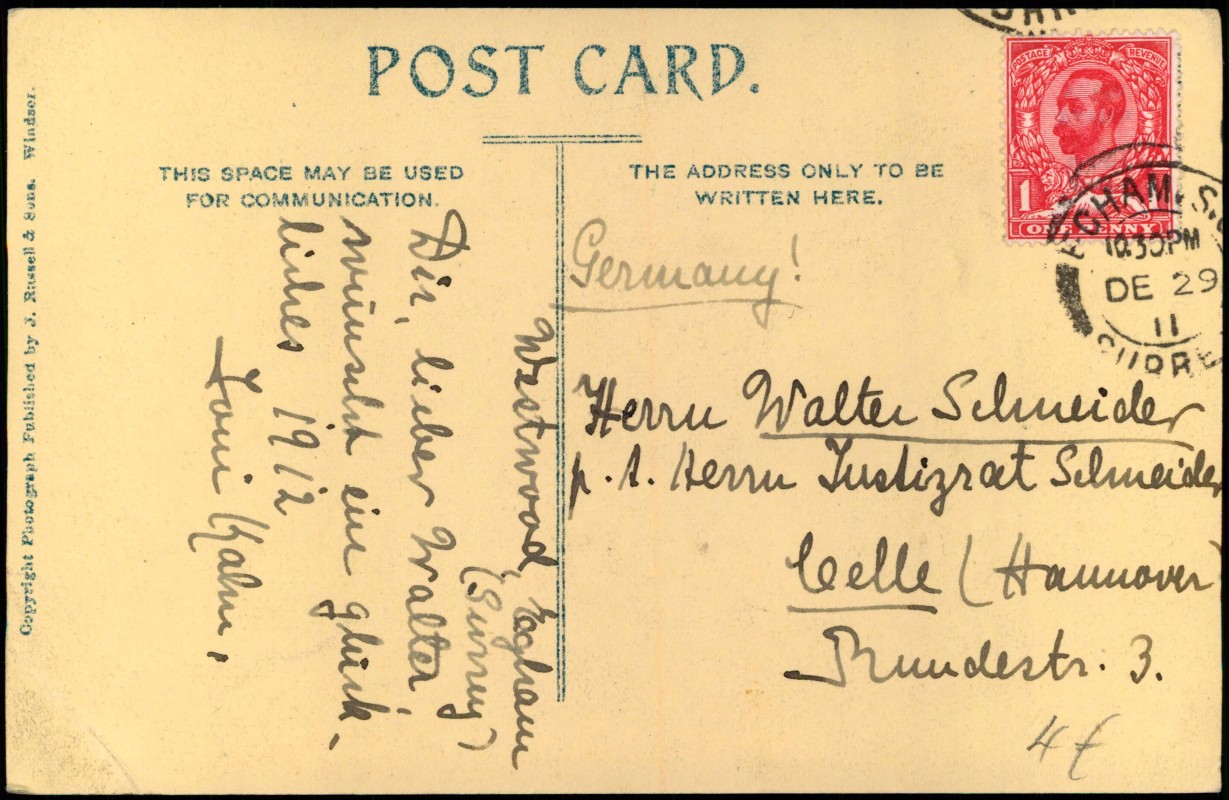 POST CARD.
THIS SPACE MAY BE USED
FOR COMMUNICATION.
THE ADDRESS ONLY TO BE
WRITTEN HERE.
POSTAGE REVENUE
1
ONE PENNY
EGHAM. S.O.
10.30PM
DE 29
11
SURREY
Germany!
Herrn Walter Schneider
p. A. Herrn Justizrat Schneider
Celle (Hannover)
Bundestr. 3.
Westwood, Egham
(Surrey)
Dir, lieber Walter,
wünscht ein glück-
liches 1912
Toni Kahn.
Copyright Photograph Published by J. Russell & Sons. Windsor.